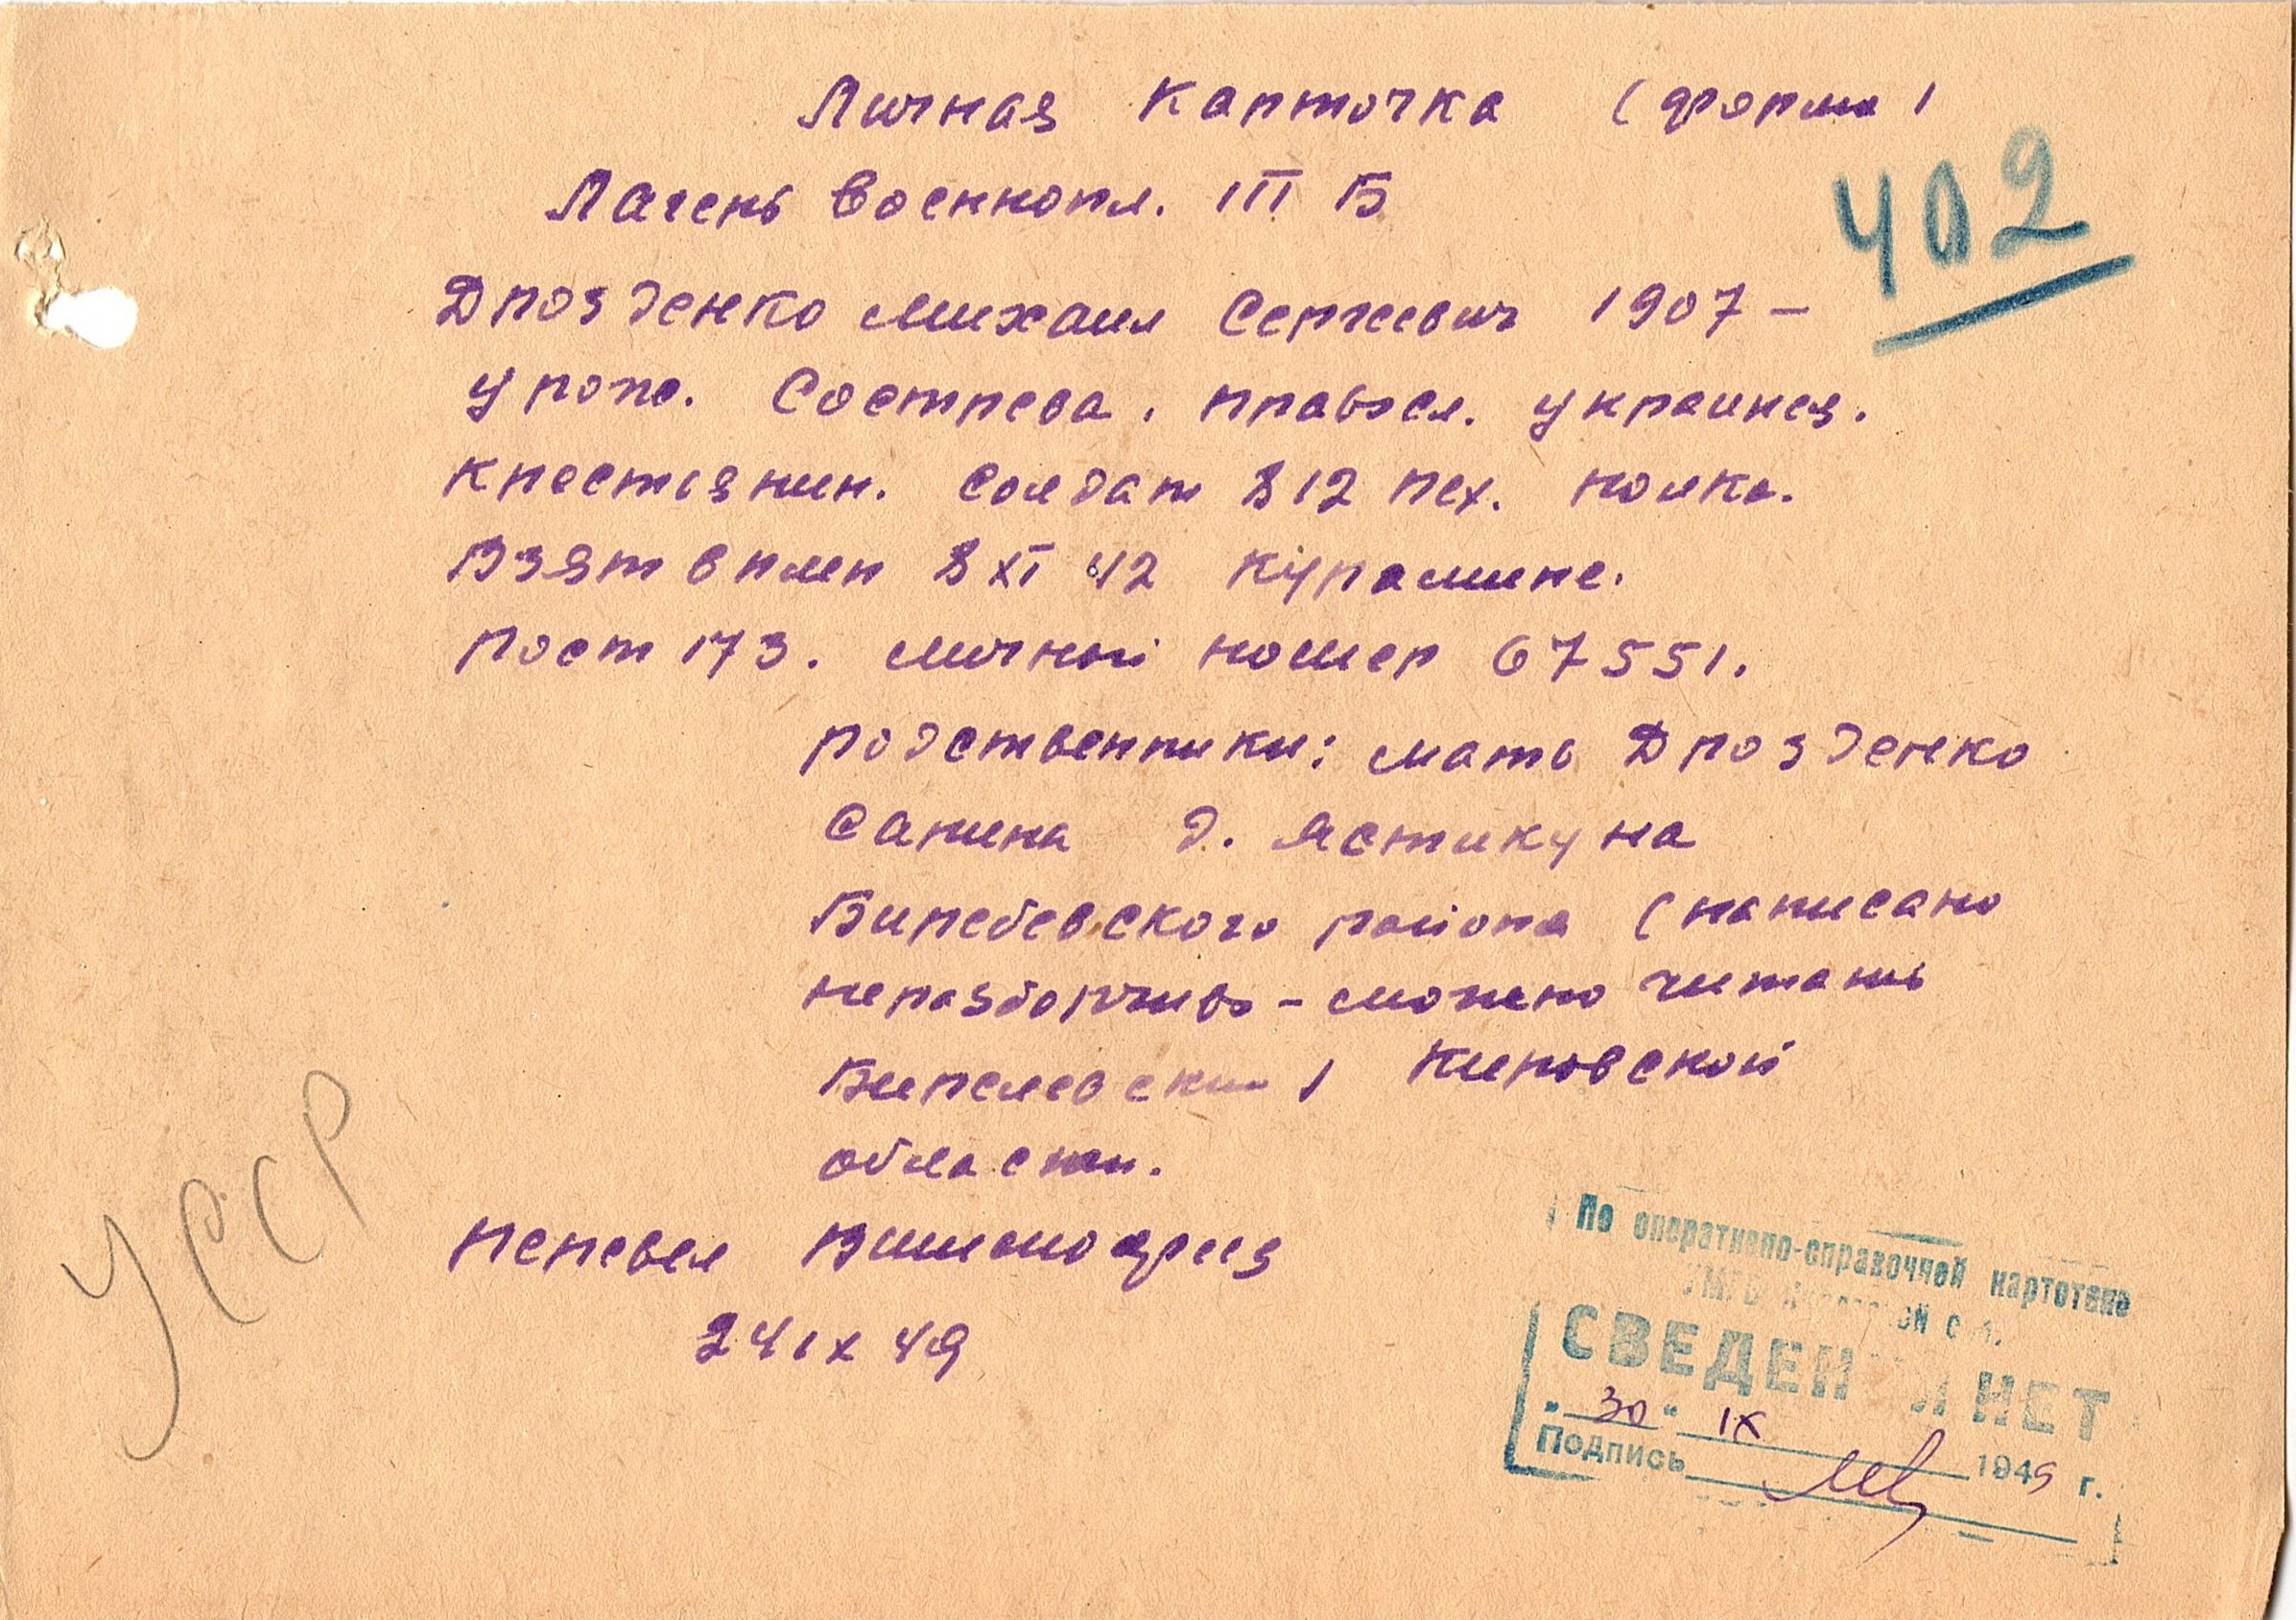 Личная карточка (форма 1
402
Лагерь военнопл. III Б
Дрозденко Михаил Сергеевич 1907 –
урож. Сострева. правосл. украинец.
крестьянин. солдат 812 пех. полка.
Взят в плен 8 XI 42 Курамине.
рост 173. личный номер 67551.
родственники: мать Дрозденко
Санина д. Астикуна
Биребевского района (написано
неразборчиво – можно читать
Бирелевский) Кировской
области.
Перевел
24 IX 49
УССР
По оперативно-справочной картотеке
СВЕДЕНИЙ НЕТ
„30“ IX 1949 г.
Подпись